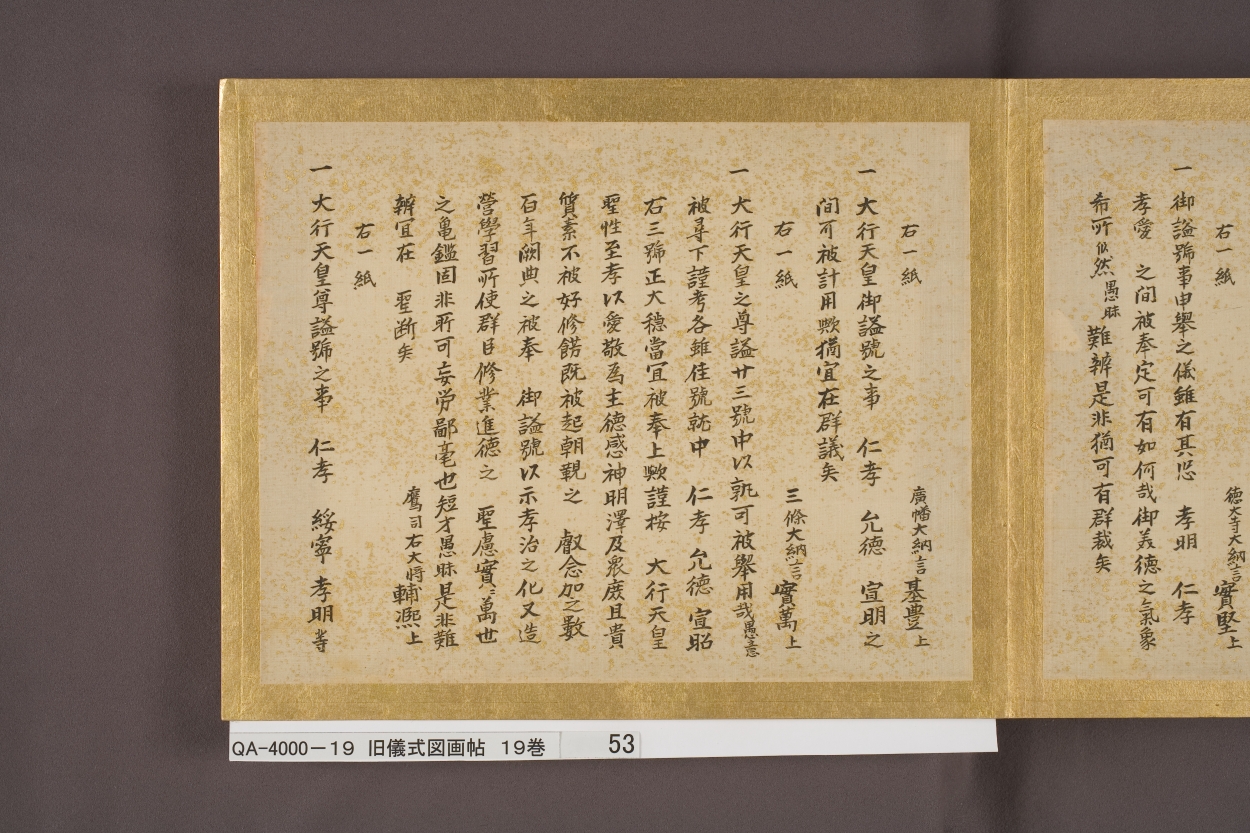 右一紙
徳大寺大納言實堅上
一 御諡號事申舉之儀雖有其恐 孝明 仁孝
孝愛 之間被奉定可有如何哉御美徳之氣象
希所似然愚昧難辨是非猶可有群裁矣
右一紙
廣幡大納言基豊上
一 大行天皇御諡號之事 仁孝 允徳 宣明之
間可被計用歟猶宜在群議矣
右一紙
三條大納言實萬上
一 大行天皇之尊諡廿三號中以孰可被舉用哉愚意
被尋下謹考各雖佳號就中 仁孝 允徳 宣昭
右三號正大穏當宜被奉上歟謹按 大行天皇
聖性至孝以愛敬為主徳感神明澤及衆庶且貴
質素不被好修餝既被起朝覲之 叡念加之數
百年闕典之被奉 御諡號以示孝治之化又造
營學習所使群臣修業進徳之 聖慮實ニ萬世
之亀鑑固非所可妄労鄙毫也短才愚昧是非難
辨宜在 聖断矣
鷹司右大将輔凞上
右一紙
一 大行天皇尊諡號之事 仁孝 綏寧 孝明 等
QA-4000-19 旧儀式図画帖 19巻 53